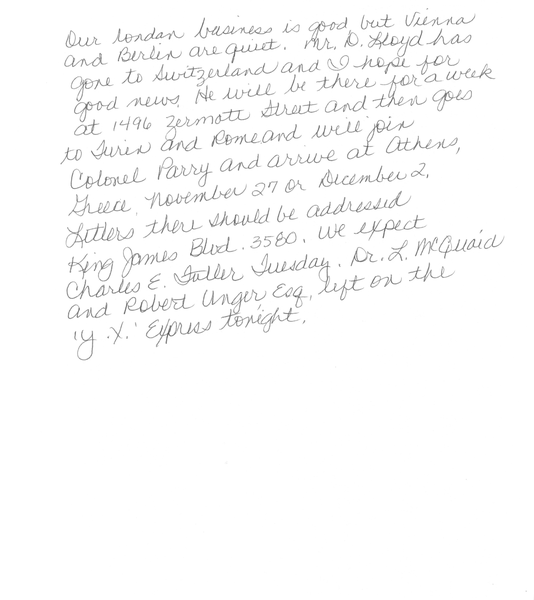 Our london business is good but Vienna
and Berlin are quiet. Mr. D. Lloyd has
gone to Switzerland and I hope for
good news. He will be there for a week
at 1496 Zermott Street and then goes
to Turin and Rome and will join
Colonel Parry and arrive at Athens,
Greece, November 27 or December 2.
Letters there should be addressed
King James Blvd. 3580. We expect
Charles E. Fuller Tuesday. Dr. L. McQuaid
and Robert Unger Esq. left on the
'Y.X.' Express tonight.